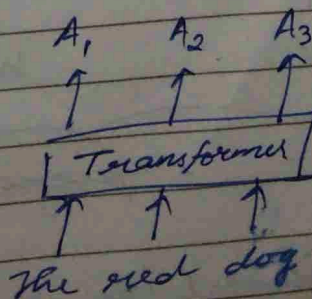 A₁ A₂ A₃
Transformer
The red dog